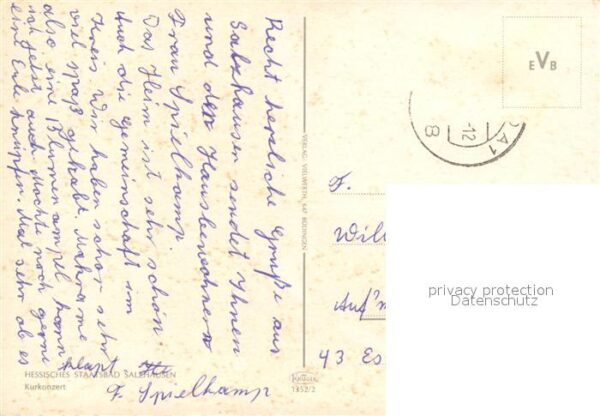 Recht herzliche Grüße aus
Salzhausen sendet Ihnen
und den Hausbewohnern
Frau Spielkamp.
Das Heim ist sehr schön.
Auch die Gemeinschaft im
Kreis. Wir haben schon sehr
viel spaß gehabt. Makrame
also eine Blumenampel kann
ich jetzt auch. Möchte noch gerne
eine Eule knüpfen. Mal sehn ob es
klapt.
F. Spielkamp
HESSISCHES STAATSBAD SALZHAUSEN
Kurkonzert
VERLAG: VIELWERTH, 647 BÜDINGEN
KRÜGER
1352/2
EVB
-12
8
F.
Wil
Auf'm
43 Es
privacy protection
Datenschutz